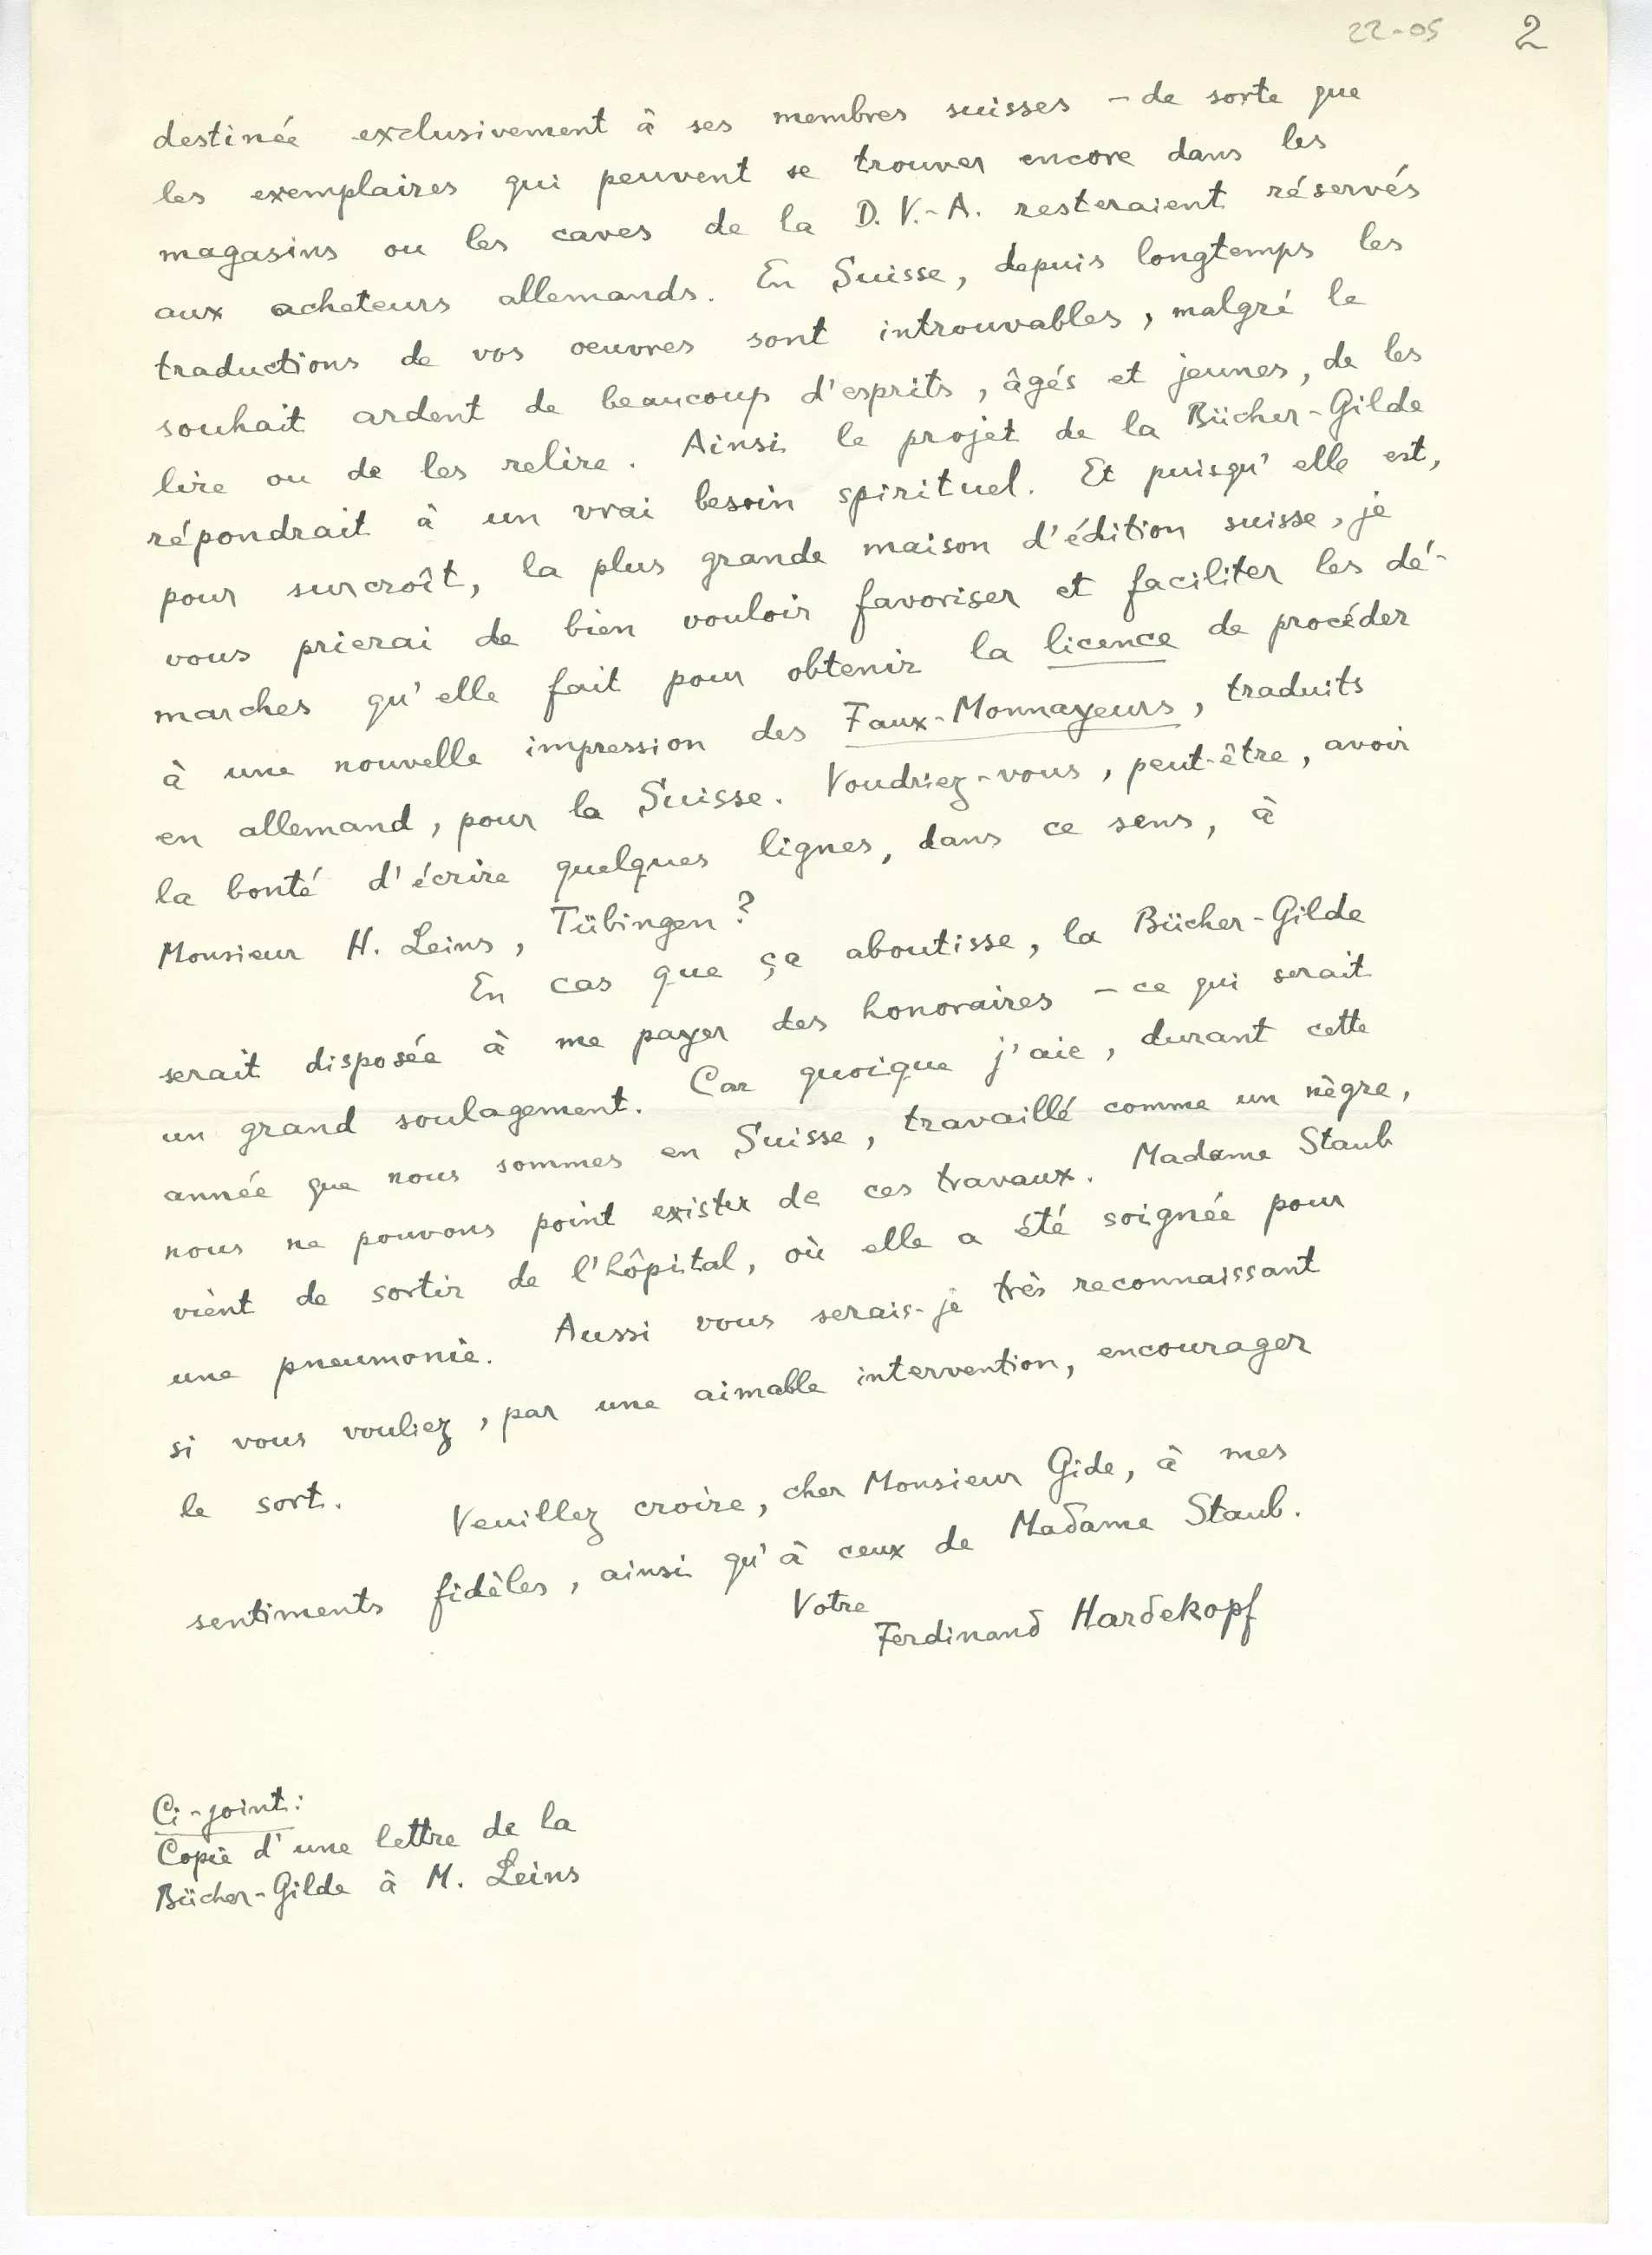 22-05 2
destinée exclusivement à ses membres suisses – de sorte que
les exemplaires qui peuvent se trouver encore dans les
magasins ou les caves de la D. V.-A. resteraient réservés
aux acheteurs allemands. En Suisse, depuis longtemps les
traductions de vos oeuvres sont introuvables, malgré le
souhait ardent de beaucoup d'esprits, âgés et jeunes, de les
lire ou de les relire. Ainsi le projet de la Bücher-Gilde
répondrait à un vrai besoin spirituel. Et puisqu'elle est,
pour surcroît, la plus grande maison d'édition suisse, je
vous prierai de bien vouloir favoriser et faciliter les dé-
marches qu'elle fait pour obtenir la licence de procéder
à une nouvelle impression des Faux-Monnayeurs, traduits
en allemand, pour la Suisse. Voudriez-vous, peut-être, avoir
la bonté d'écrire quelques lignes, dans ce sens, à
Monsieur H. Leins, Tübingen?
En cas que ça aboutisse, la Bücher-Gilde
serait disposée à me payer des honoraires – ce qui serait
un grand soulagement. Car quoique j'aie, durant cette
année que nous sommes en Suisse, travaillé comme un nègre,
nous ne pouvons point exister de ces travaux. Madame Staub
vient de sortir de l'hôpital, où elle a été soignée pour
une pneumonie. Aussi vous serais-je très reconnaissant
si vous vouliez, par une aimable intervention, encourager
le sort.
Veuillez croire, cher Monsieur Gide, à mes
sentiments fidèles, ainsi qu'à ceux de Madame Staub.
Votre
Ferdinand Hardekopf
Ci-joint:
Copie d'une lettre de la
Bücher-Gilde à M. Leins